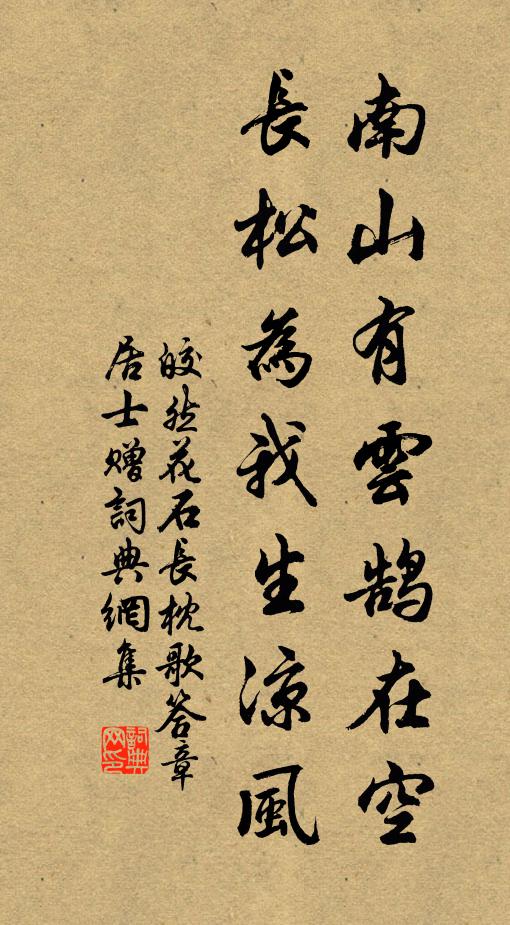 南山有雲鹄在空
長松為我生涼風
皎然花石長枕歌答章
居士贈詞典網集
詞典网印